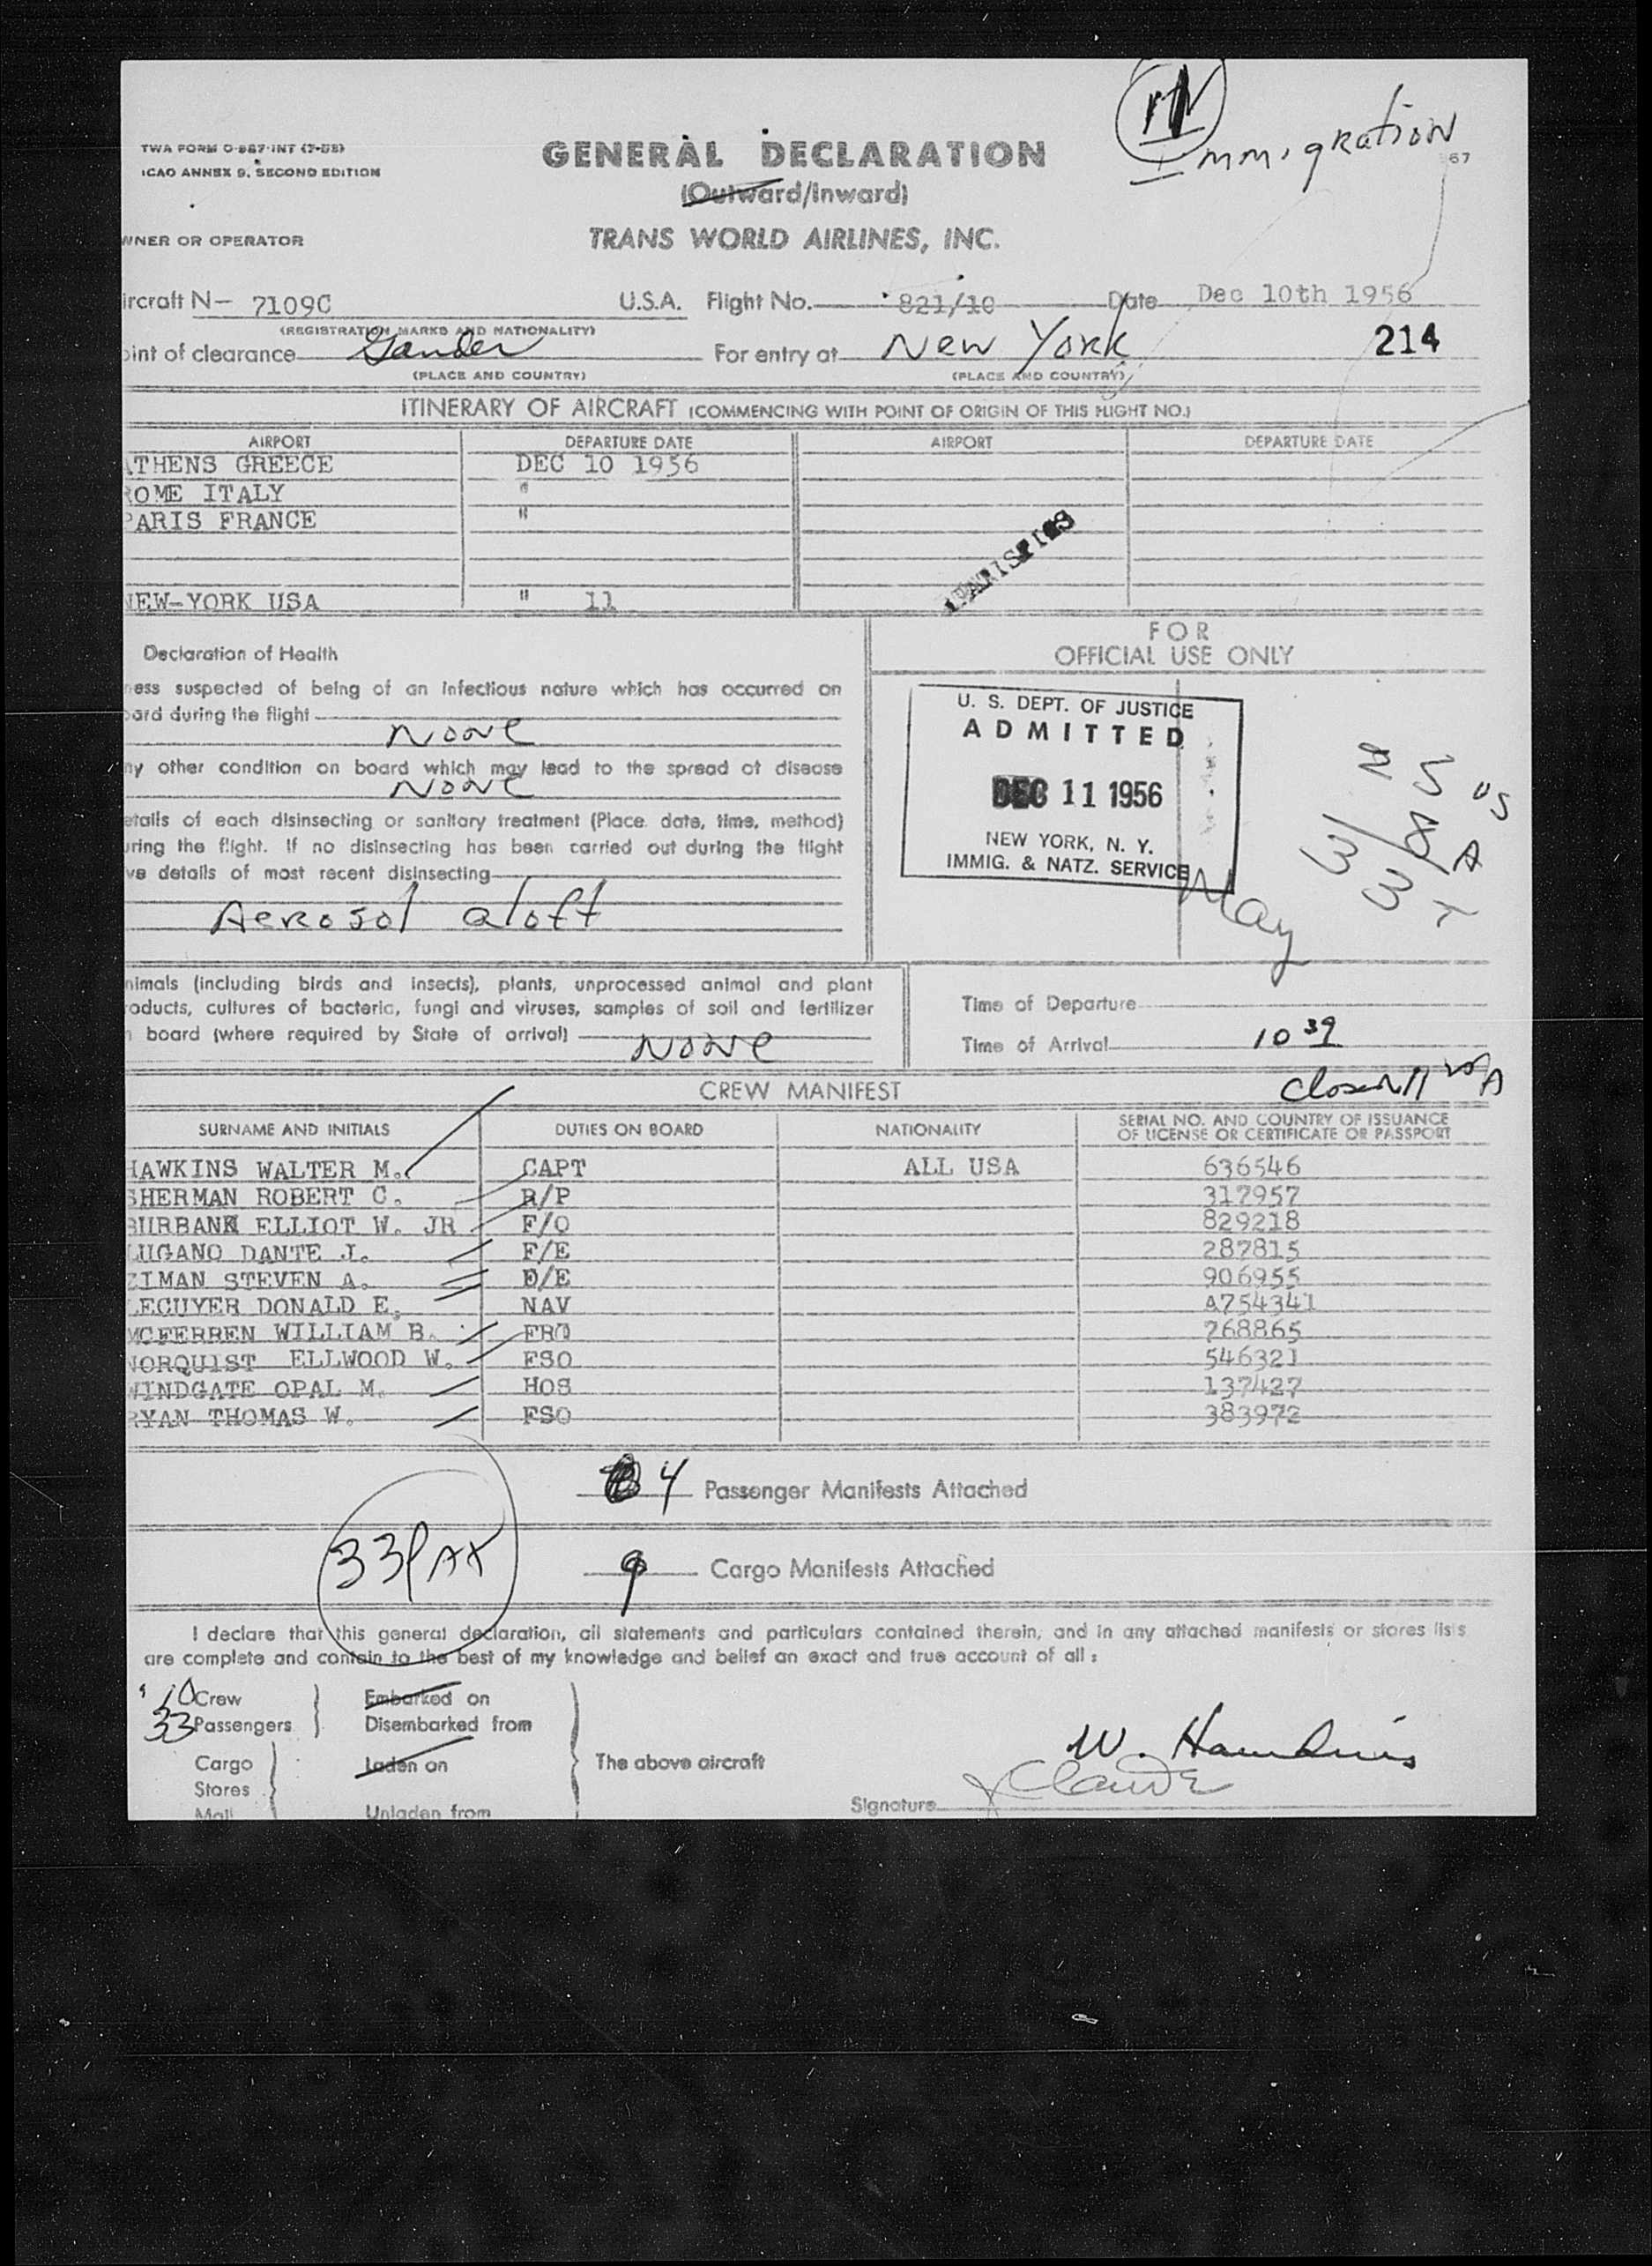 Immigration
67
TWA FORM O-867-INT (7-55)
ICAO ANNEX 9, SECOND EDITION
GENERAL DECLARATION
(Outward/Inward)
WNER OR OPERATOR
TRANS WORLD AIRLINES, INC.
ircraft N- 7109C U.S.A. Flight No. 821/10 Date Dec 10th 1956
(REGISTRATION MARKS AND NATIONALITY)
oint of clearance Gander For entry at New York 214
(PLACE AND COUNTRY) (PLACE AND COUNTRY)
ITINERARY OF AIRCRAFT (COMMENCING WITH POINT OF ORIGIN OF THIS FLIGHT NO.)
AIRPORT DEPARTURE DATE AIRPORT DEPARTURE DATE
THENS GREECE DEC 10 1956
ROME ITALY "
PARIS FRANCE "
NEW-YORK USA " 11
FOR
OFFICIAL USE ONLY
Declaration of Health
ness suspected of being of an infectious nature which has occurred on
oard during the flight
None
ny other condition on board which may lead to the spread of disease
None
etails of each disinsecting or sanitary treatment (Place. date, time, method)
uring the flight. If no disinsecting has been carried out during the flight
ve details of most recent disinsecting
Aerosol aloft
U. S. DEPT. OF JUSTICE
ADMITTED
DEC 11 1956
NEW YORK, N. Y.
IMMIG. & NATZ. SERVICE
May
nimals (including birds and insects), plants, unprocessed animal and plant
roducts, cultures of bacteria, fungi and viruses, samples of soil and fertilizer
n board (where required by State of arrival) None
Time of Departure
Time of Arrival 10 39
CREW MANIFEST
SURNAME AND INITIALS DUTIES ON BOARD NATIONALITY SERIAL NO. AND COUNTRY OF ISSUANCE
OF LICENSE OR CERTIFICATE OR PASSPORT
HAWKINS WALTER M. CAPT ALL USA 636546
SHERMAN ROBERT C. R/P 317957
BURBANK ELLIOT W. JR F/O 829218
LUGANO DANTE J. F/E 287815
ZIMAN STEVEN A. D/E 906955
LECUYER DONALD E. NAV A754341
MCFERREN WILLIAM B. FRO 768865
NORQUIST ELLWOOD W. FSO 546321
WINDGATE OPAL M. HOS 137427
RYAN THOMAS W. FSO 383972
4 Passenger Manifests Attached
33 PAX
9 Cargo Manifests Attached
I declare that this general declaration, all statements and particulars contained therein, and in any attached manifests or stores lists
are complete and contain to the best of my knowledge and belief an exact and true account of all :
10 Crew Embarked on
33 Passengers Disembarked from
Cargo Laden on The above aircraft
Stores
Mail Unladen from
W. Hawkins
Signature